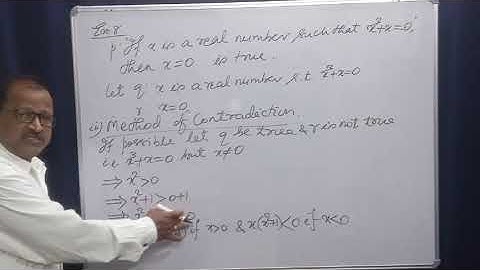 Ex. 8
p "If x is a real number such that x³+x=0,
then x=0 is true.
Let q: x is a real number s.t x³+x=0
r x=0
ii) Method of Contradiction
If possible let q be true & r is not true
ie x³+x=0 but x≠0
⇒ x²>0
⇒ x²+1>0+1
⇒ x²
if x>0 & x(x²+1)<0 if x<0